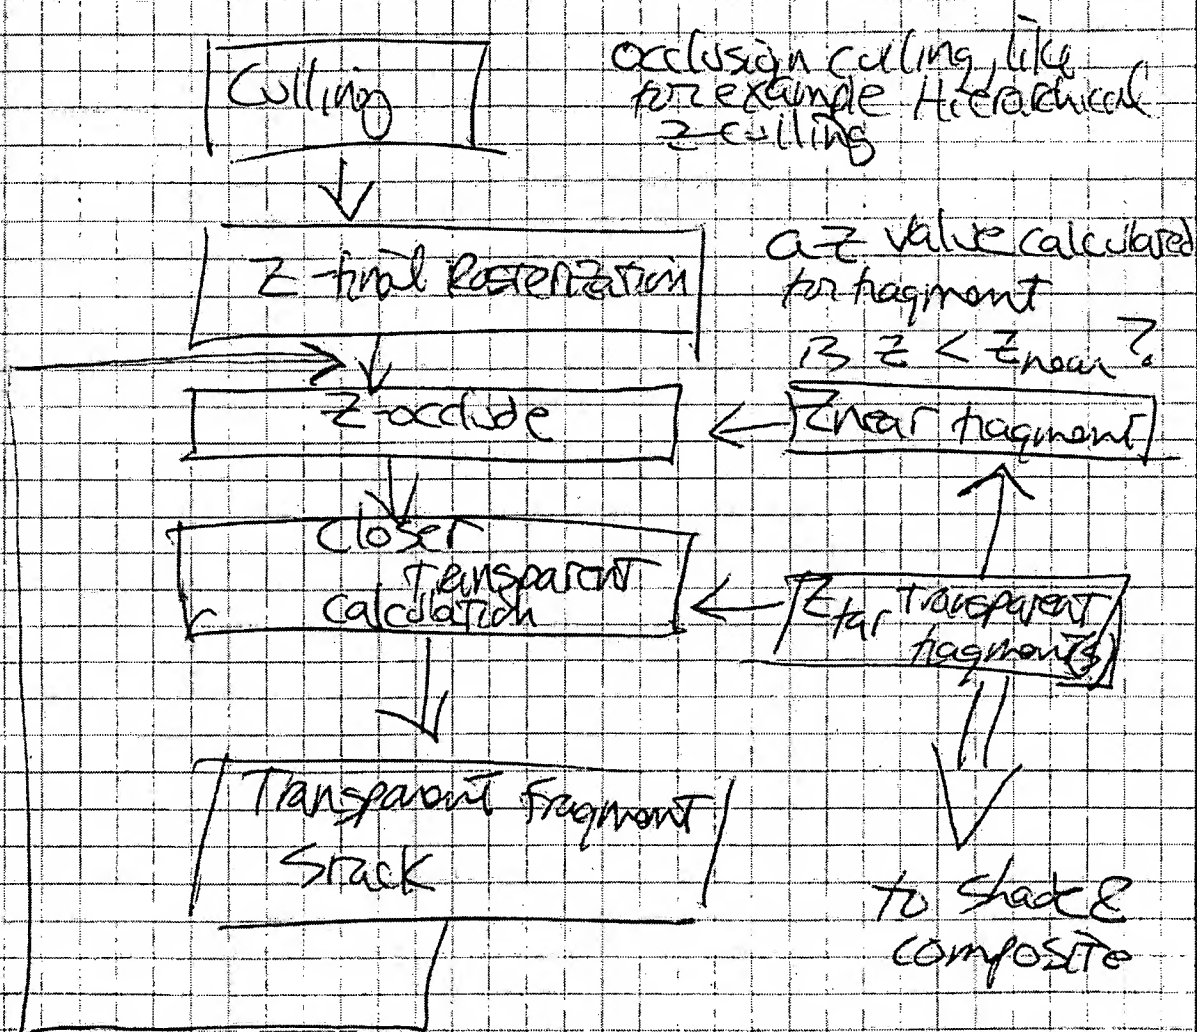 Culling
occlusion culling, like
for example Hierarchical
z-culling
Z-final Rasterization
a z value calculated
for fragment
is z < Znear?
Z-occlude
Znear fragment
Closer
Transparent
calculation
Zfar Transparent
fragment(s)
Transparent Fragment
Stack
to shade &
composite